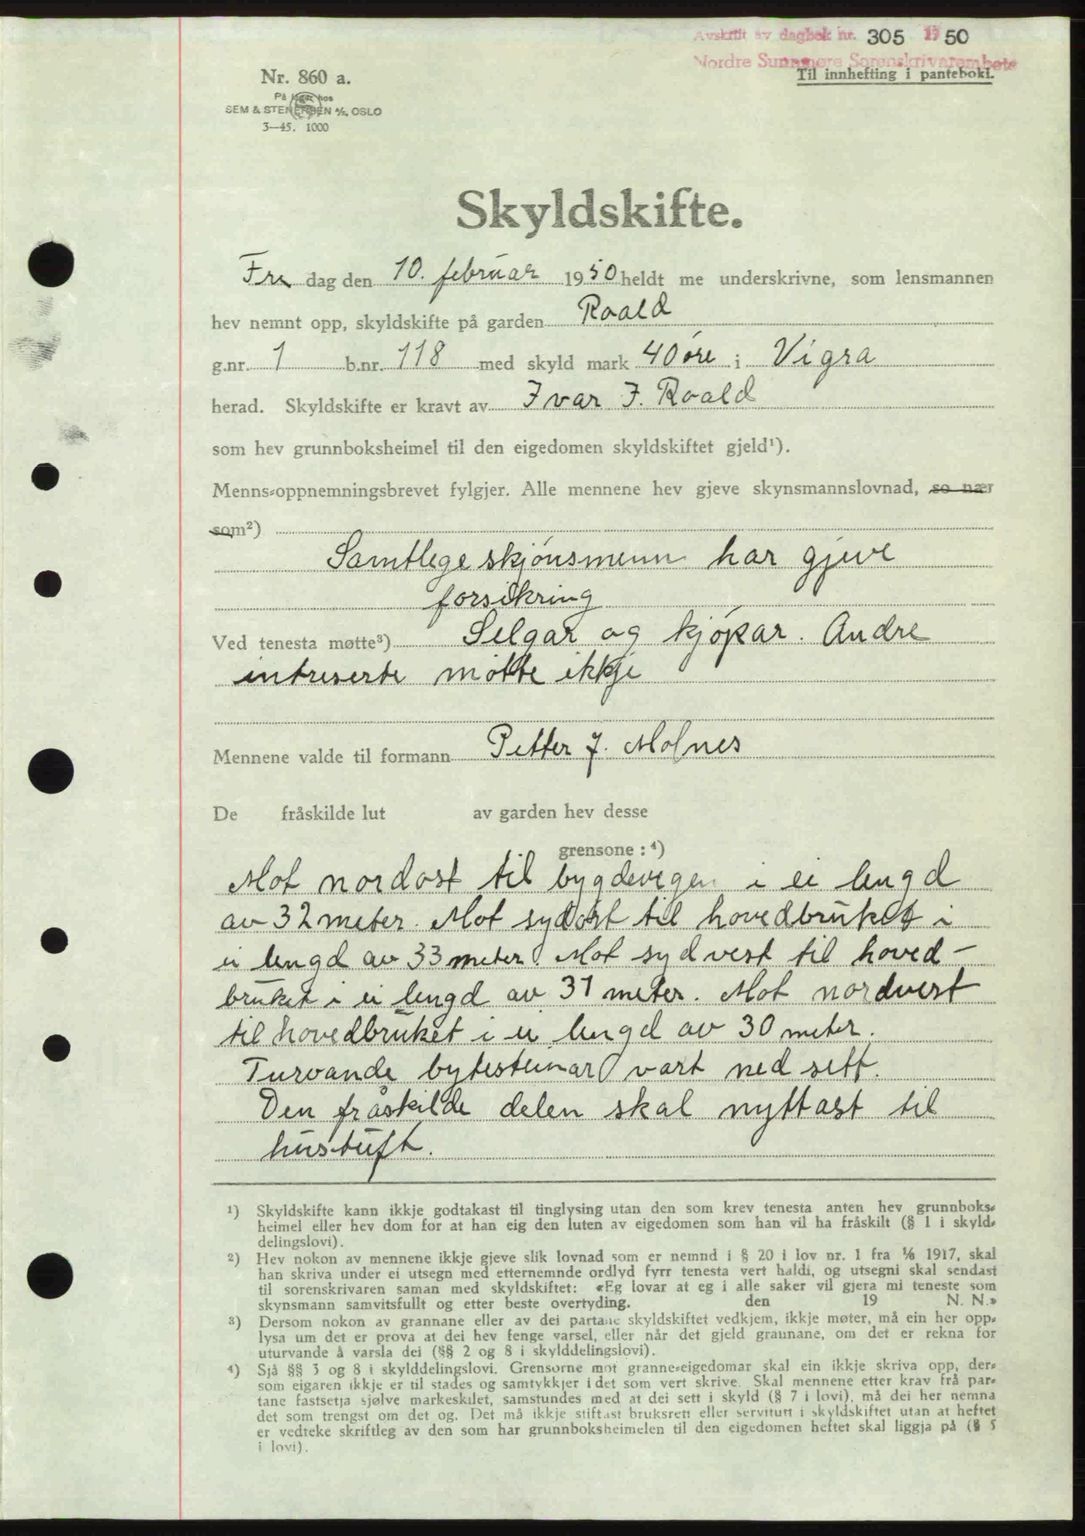 Avskrift av dagbok nr. 305 1950
Nordre Sunnmøre Sorenskrivarembete
Til innhefting i pantebok.
Nr. 860 a.
På lager hos
SEM & STENERSEN A/S, OSLO
3—45. 1000
Skyldskifte.
Fre dag den 10. februar 1950 heldt me underskrivne, som lensmannen
hev nemnt opp, skyldskifte på garden Roald
g.nr. 1 b.nr. 118 med skyld mark 40 øre i Vigra
herad. Skyldskifte er kravt av Ivar J. Roald
som hev grunnboksheimel til den eigedomen skyldskiftet gjeld¹).
Menns-oppnemningsbrevet fylgjer. Alle mennene hev gjeve skynsmannslovnad, so nær
som²)
Samtlege skjönsmenn har gjeve
forsikring
Ved tenesta møtte³) Selgar og kjöpar. Andre
intreserte mötte ikkje
Mennene valde til formann Petter J. Molnes
De fråskilde lut av garden hev desse
grensone :⁴)
Mot nordost til bygdevegen i ei lengd
av 32 meter. Mot sydost til hovedbruket i
ei lengd av 33 meter. Mot sydvest til hoved-
bruket i ei lengd av 31 meter. Mot nordvest
til hovedbruket i ei lengd av 30 meter.
Turvande bytesteinar vart ned sett.
Den fråskilde delen skal nyttast til
hustuft.
¹) Skyldskifte kann ikkje godtakast til tinglysing utan den som krev tenesta anten hev grunnboks-
heimel eller hev dom for at han eig den luten av eigedomen som han vil ha fråskilt (§ 1 i skyld-
delingslovi).
²) Hev nokon av mennene ikkje gjeve slik lovnad som er nemnd i § 20 i lov nr. 1 fra ¹⁄₈ 1917, skal
han skriva under ei utsegn med etternemnde ordlyd fyrr tenesta vert haldi, og utsegni skal sendast
til sorenskrivaren saman med skyldskiftet: «Eg lovar at eg i alle saker vil gjera mi teneste som
skynsmann samvitsfullt og etter beste overtyding. den 19 N. N.»
³) Dersom nokon av grannane eller av dei partane skyldskiftet vedkjem, ikkje møter, må ein her opp-
lysa um det er prova at dei hev fenge varsel, eller når det gjeld grannane, om det er rekna for
uturvande å varsla dei (§§ 2 og 8 i skylddelingslovi).
⁴) Sjå §§ 3 og 8 i skylddelingslovi. Grensorne mot granne-eigedomar skal ein ikkje skriva opp, der-
som eigaren ikkje er til stades og samtykkjer i det som vert skrive. Skal mennene etter krav frå par-
tane fastsetja sjølve markeskilet, samstundes med at dei sett i skyld (§ 7 i lovi), må dei her nemna
det som trengst om det og. Det må ikkje stiftast bruksrett eller servitutt i skyldskiftet utan at heftet
er vedteke skriftleg av den som har grunnboksheimelen til den eigedomen heftet skal liggja på (§ 5
i lovi).